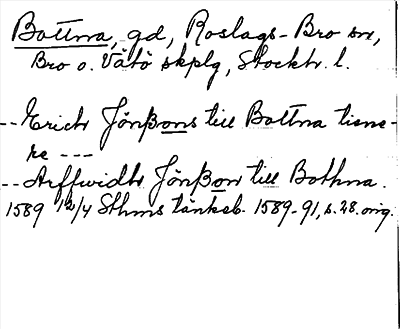 Bottna, gd, Roslags-Bro sn,
Bro o. Vätö skplg, Stockh. l.
-- Erich Jönßons till Bottna tiene-
re ---
-- Arffwidh Jönßon till Bothna.
1589 12/4 Sthms tänkeb. 1589-91, s. 28. orig.